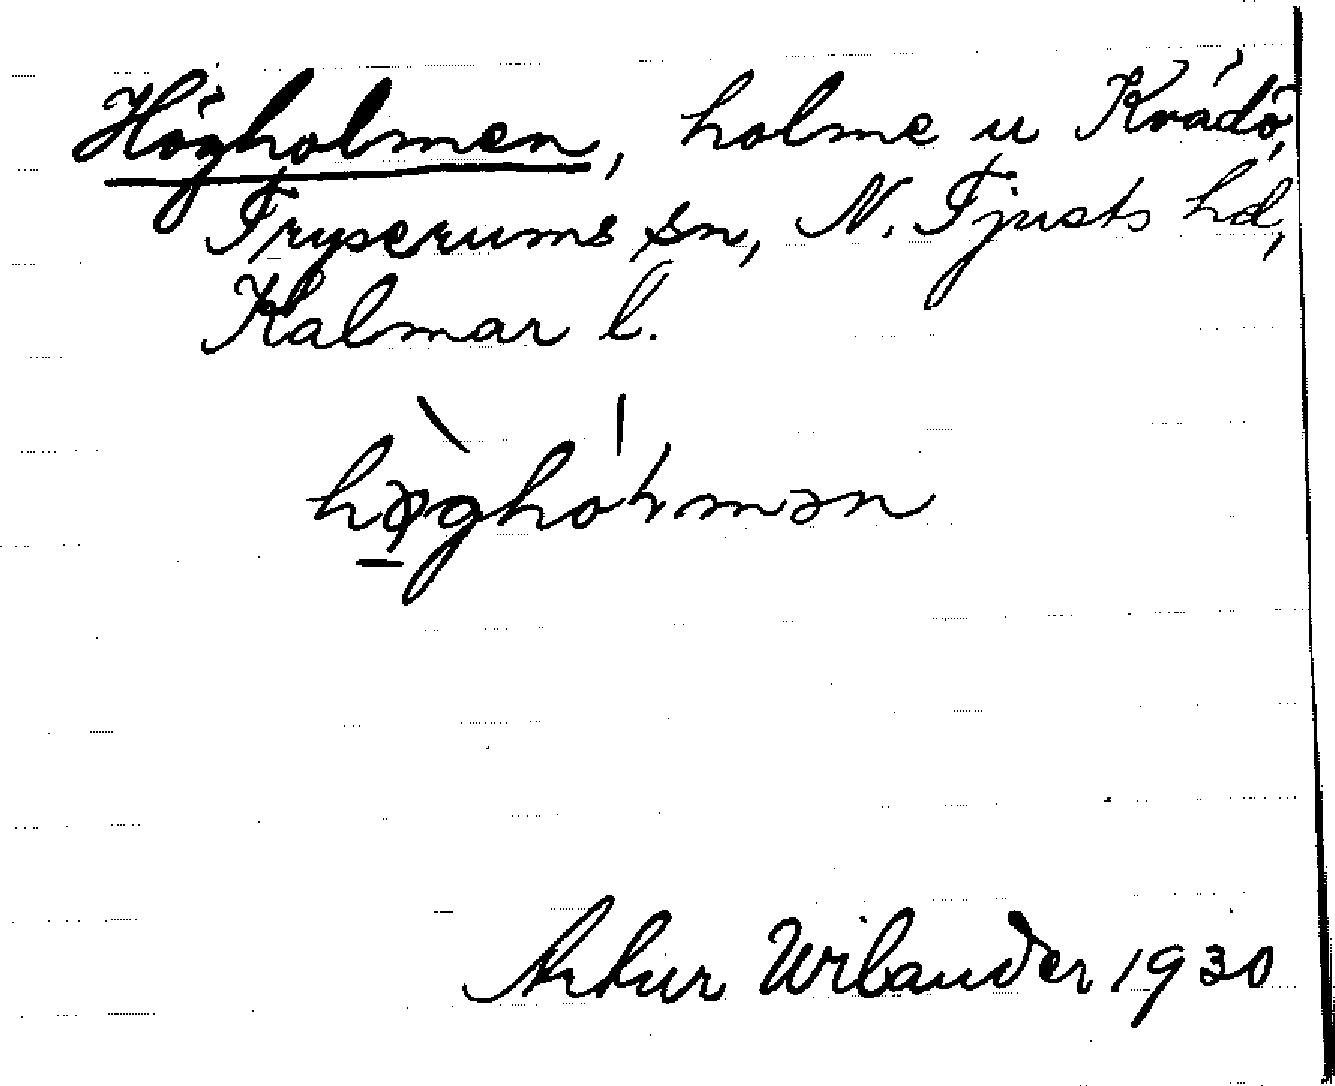 Högholmen, holme u Kvädö,
Tryserums sn, N. Tjusts hd,
Kalmar l.
Artur Wilander 1930